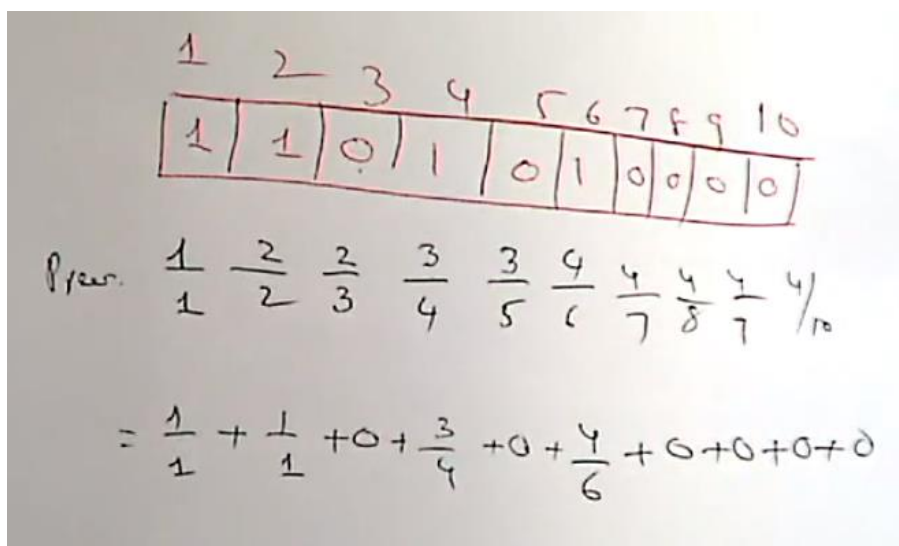 1 2 3 4 5 6 7 8 9 10
1 1 0 1 0 1 0 0 0 0
1/1 2/2 2/3 3/4 3/5 4/6 4/7 4/8 4/7 4/10
= 1/1 + 1/1 + 0 + 3/4 + 0 + 4/6 + 0 + 0 + 0 + 0